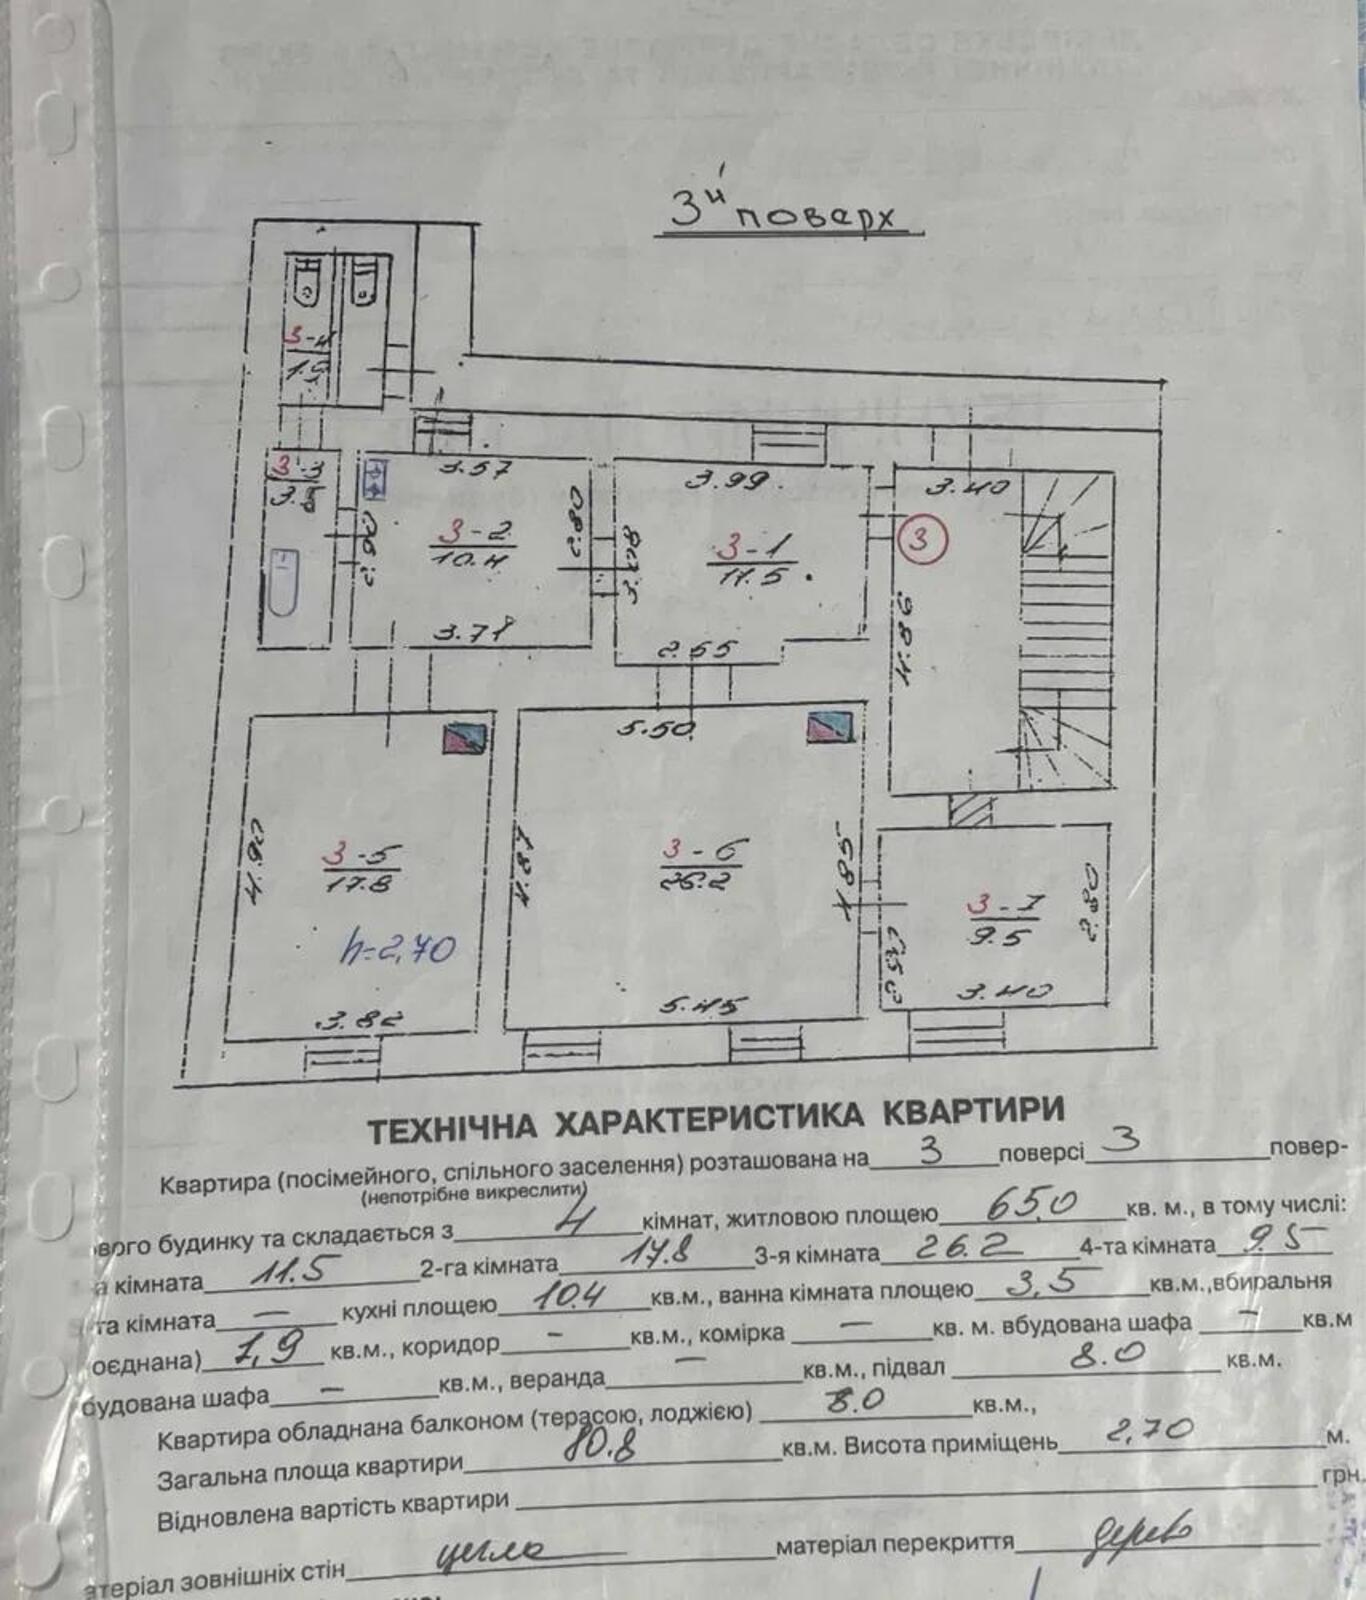 3й поверх
3-4
1.9
3-3
3.5
3.57
2.90
2.80
3-2
10.4
3.71
3.99
3.08
3-1
11.5
2.55
3.40
3
4.89
4.90
3-5
17.8
h=2,70
3.82
5.50
4.87
4.85
3-6
26.2
5.45
3-7
9.5
2.80
3.40
ТЕХНІЧНА ХАРАКТЕРИСТИКА КВАРТИРИ
Квартира (посімейного, спільного заселення) розташована на 3 поверсі 3 повер-
(непотрібне викреслити)
вого будинку та складається з 4 кімнат, житловою площею 65,0 кв. м., в тому числі:
а кімната 11.5 2-га кімната 17.8 3-я кімната 26.2 4-та кімната 9.5
та кімната — кухні площею 10.4 кв.м., ванна кімната площею 3,5 кв.м.,вбиральня
оєднана) 1,9 кв.м., коридор - кв.м., комірка — кв. м. вбудована шафа - кв.м
будована шафа — кв.м., веранда — кв.м., підвал 8.0 кв.м.
Квартира обладнана балконом (терасою, лоджією) 8.0 кв.м.,
Загальна площа квартири 80.8 кв.м. Висота приміщень 2,70 м.
Відновлена вартість квартири грн.
атеріал зовнішніх стін цегла матеріал перекриття дерево